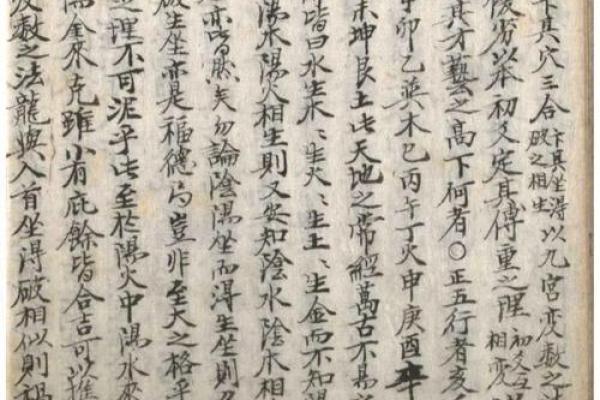 卞其穴三合 卞其坐淂破之相生 以九宮変数之
後旁以本初爻定其傳重之陞 初爻 相変
其才藝之高下何者〇正五行者亥
卯乙巽木巳丙午丁火申庚酉辛
未坤艮土此天地之常經萬古不易
皆曰水生木〻生火〻生土〻生金而不知陽
陽木陽火相生則又安知陰水陰木相
亦皆然矣勿論陰陽坐而淂生坐則
破生坐亦是福德乃豈非至大之格乎
之理不可泥乎此至於陽火中陽水來
陽金來克雖小有庇餘皆合吉可以推
変数之法龍與入首坐淂破相似則禍